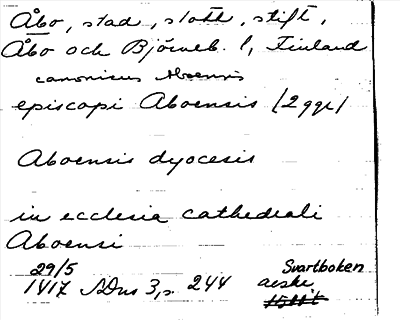 Åbo, stad, slott, stift,
Åbo och Björneb. l, Finland
canonicus Aboensis
episcopi Aboensis (2 ggr)
Aboensis dyocesis
in ecclesia cathedrali
Aboensi
29/5 Svartboken
1417 SDns 3, s. 244 aeske,